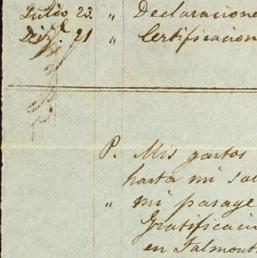 Julio 23. " Declaracione
Dic.e 21 " Certificacion
P. Mis gastos
hasta mi sa
" mi pasage
Gratificaci
en Falmout